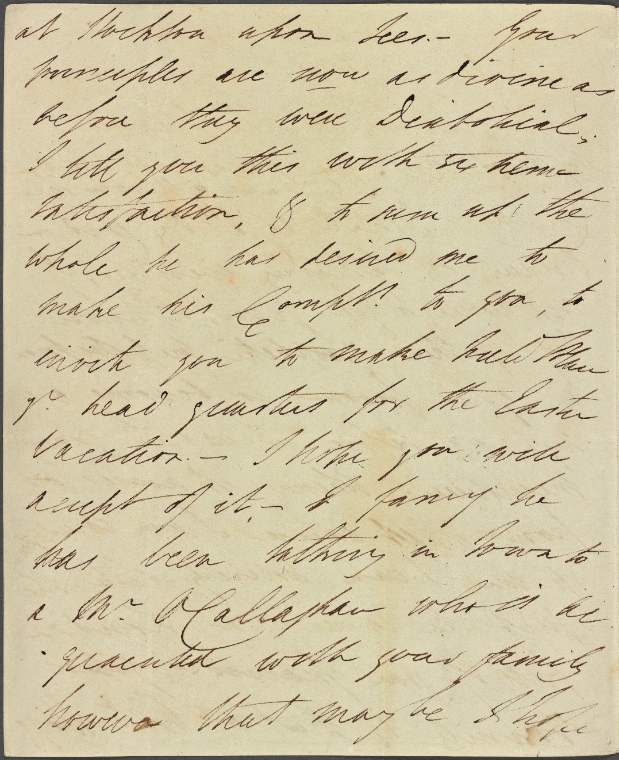 at Stockton upon Tees.– Your
principles are now as divine as
before they were Diabolical,
I tell you this with extreme
satisfaction, & to sum up the
whole he has desired me to
make his Compts. to you, to
invite you to make Field Place
yr. head quarters for the Easter
Vacation.– I hope you will
accept of it,– I fancy he
has been talking in Town to
a Mr. O'Callaghan who is ac
quainted with your family
however that may be I hope